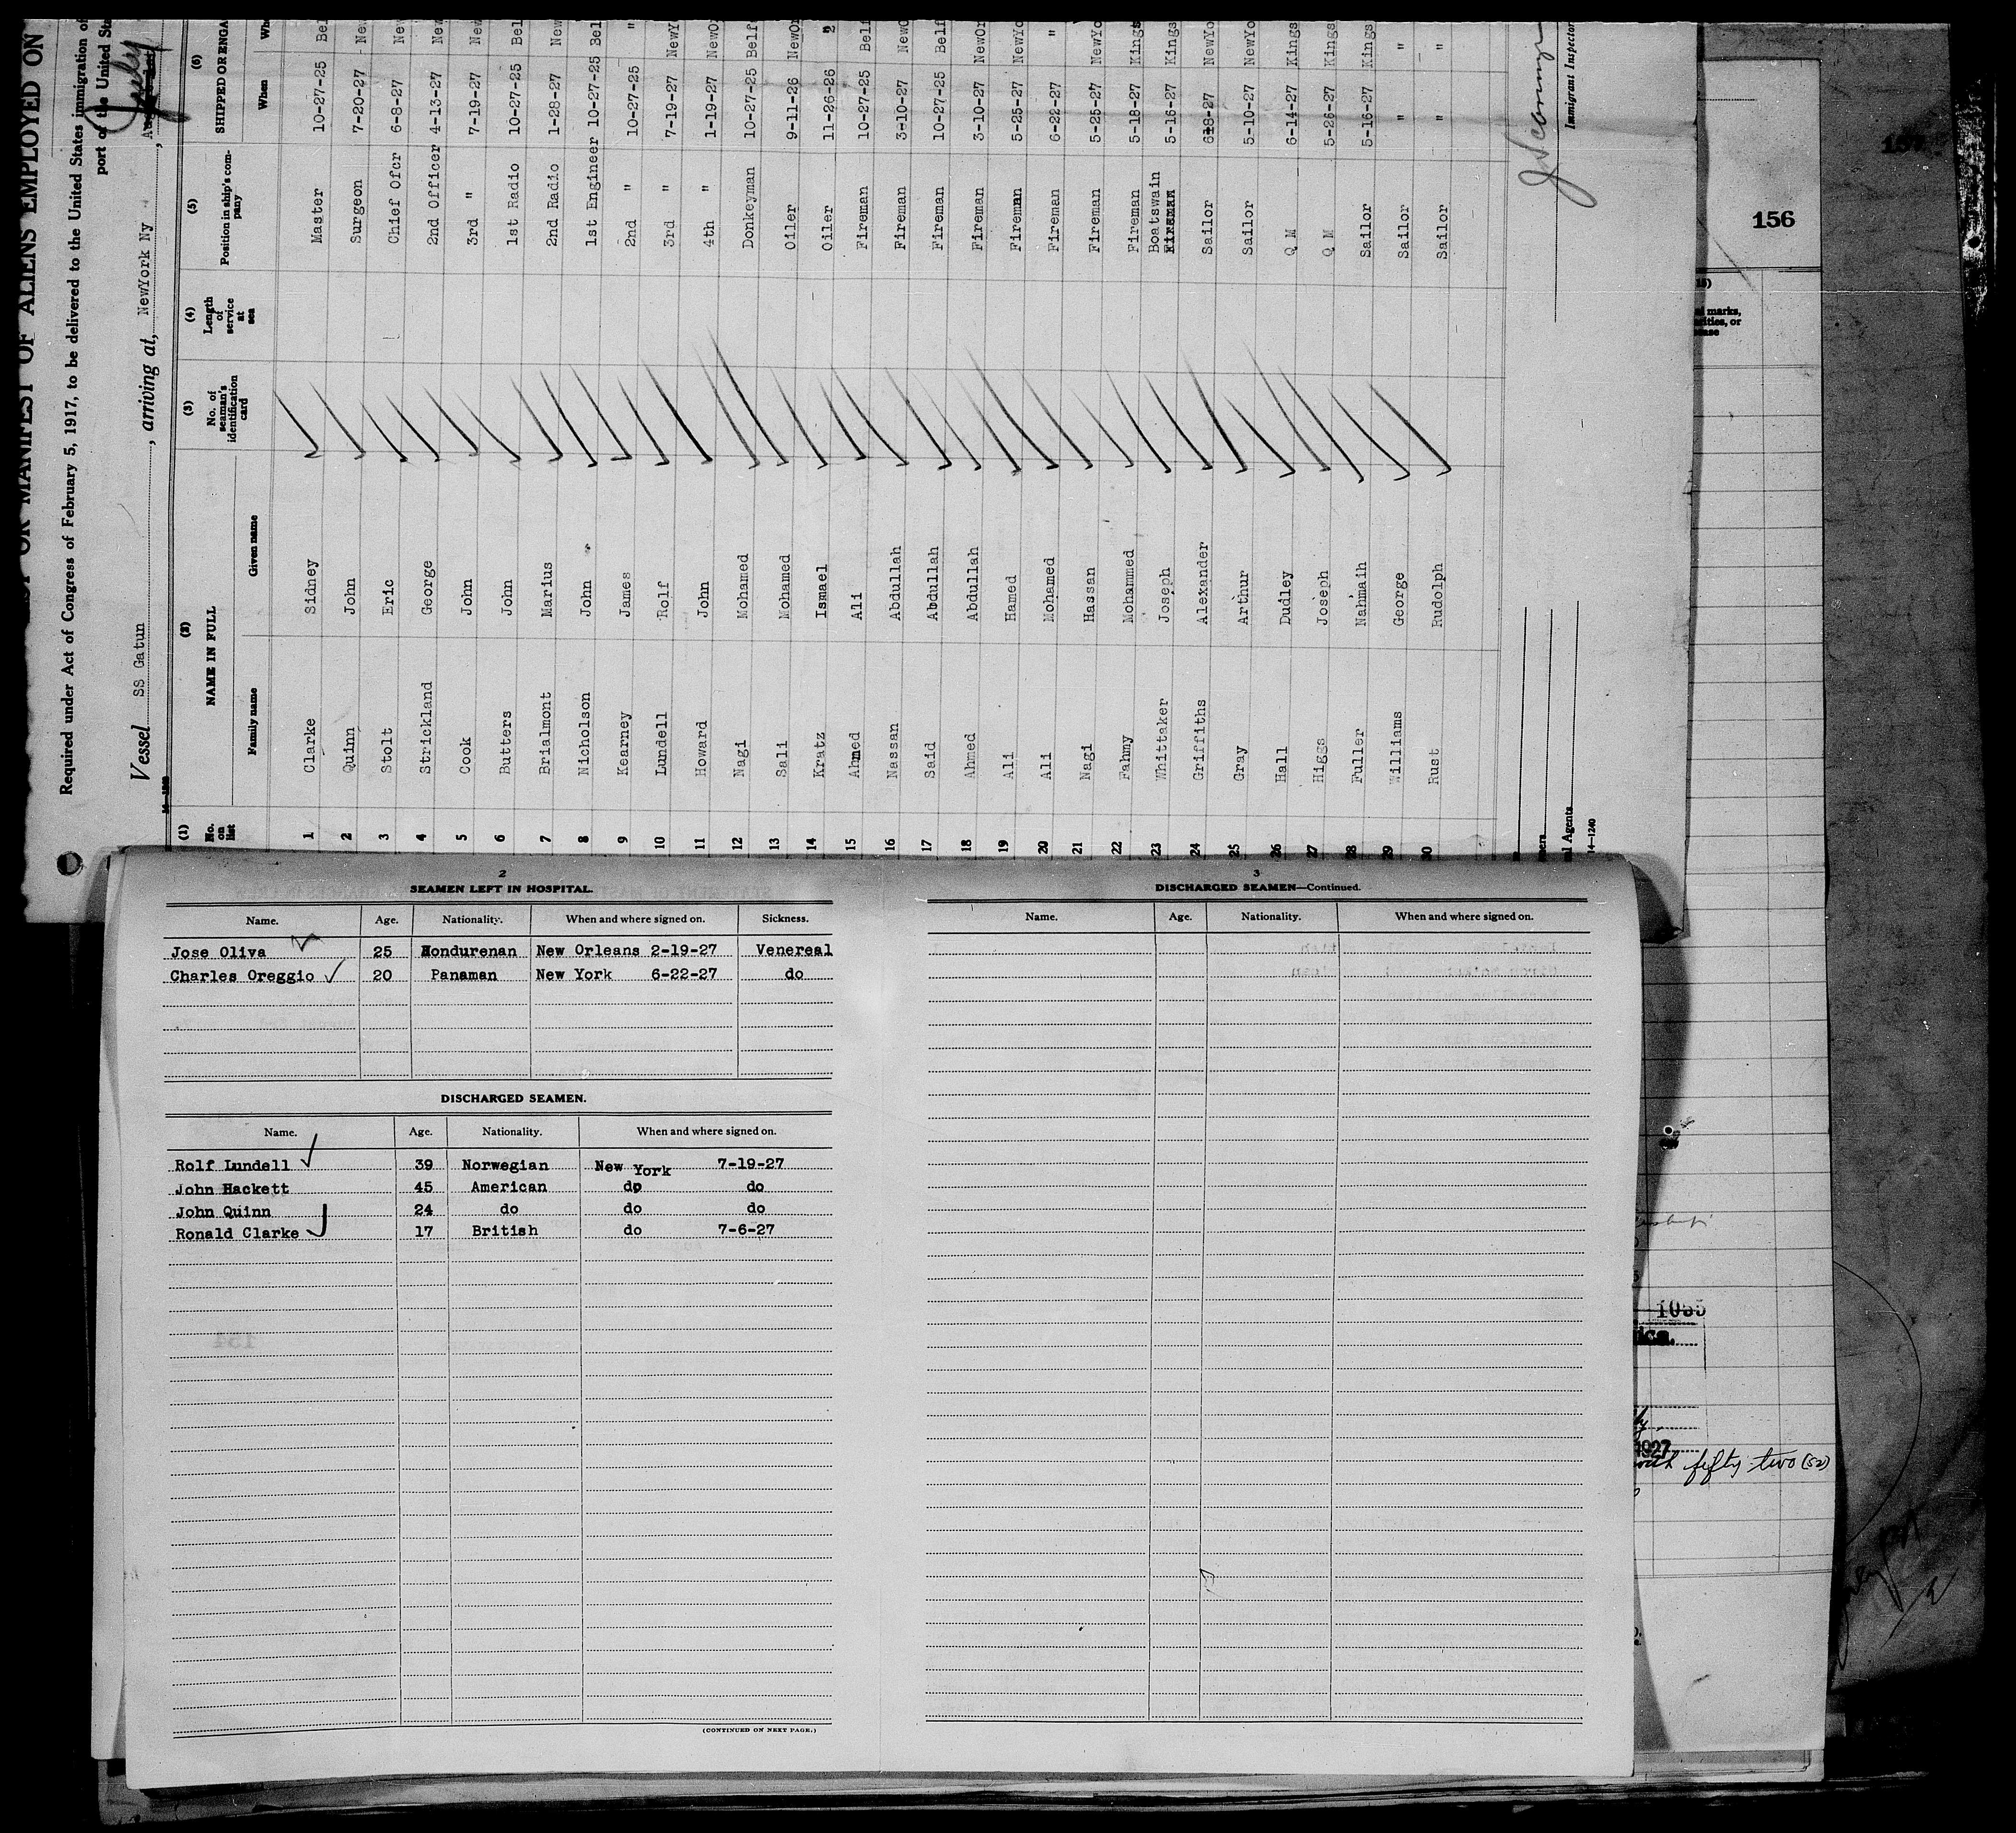 OR MANIFEST OF ALIENS EMPLOYED ON
Required under Act of Congress of February 5, 1917, to be delivered to the United States immigration of
port of the United Sta
Vessel SS Gatun, arriving at, NewYork Ny, July
(1) (2) (3) (4) (5) (6)
No. on list NAME IN FULL No. of seaman's identification card Length of service at sea Position in ship's company SHIPPED OR ENGA
Family name Given name When Wh
1 Clarke Sidney Master 10-27-25 Bel
2 Quinn John Surgeon 7-20-27 New
3 Stolt Eric Chief Ofcr 6-8-27 New
4 Strickland George 2nd Officer 4-13-27 New
5 Cook John 3rd " 7-19-27 New
6 Butters John 1st Radio 10-27-25 Bel
7 Brialmont Marius 2nd Radio 1-28-27 New
8 Nicholson John 1st Engineer 10-27-25 Bel
9 Kearney James 2nd " 10-27-25 "
10 Lundell Rolf 3rd " 7-19-27 NewY
11 Howard John 4th " 1-19-27 NewO
12 Nagi Mohamed Donkeyman 10-27-25 Belf
13 Sali Mohamed Oiler 9-11-26 NewO
14 Kratz Ismael Oiler 11-26-26
15 Ahmed Ali Fireman 10-27-25 Belf
16 Nassan Abdullah Fireman 3-10-27 NewO
17 Said Abdullah Fireman 10-27-25 Belf
18 Ahmed Abdullah Fireman 3-10-27 NewOr
19 Ali Hamed Fireman 5-25-27 NewYo
20 Ali Mohamed Fireman 6-22-27 "
21 Nagi Hassan Fireman 5-25-27 NewYo
22 Fahmy Mohammed Fireman 5-18-27 Kings
23 Whittaker Joseph Boatswain 5-16-27 Kings
24 Griffiths Alexander Sailor 6-8-27 NewYo
25 Gray Arthur Sailor 5-10-27 NewYo
26 Hall Dudley Q M 6-14-27 Kings
27 Higgs Joseph Q M 5-26-27 Kings
28 Fuller Nahmaih Sailor 5-16-27 Kings
29 Williams George Sailor " "
30 Rust Rudolph Sailor " "
Immigrant Inspector
al Agents
14—1240
156
al marks,
1927
fifty-two (52)
2
SEAMEN LEFT IN HOSPITAL.
Name. Age. Nationality. When and where signed on. Sickness.
Jose Oliva 25 Hondurenan New Orleans 2-19-27 Venereal
Charles Oreggio 20 Panaman New York 6-22-27 do
DISCHARGED SEAMEN.
Name. Age. Nationality. When and where signed on.
Rolf Lundell 39 Norwegian New York 7-19-27
John Hackett 45 American do do
John Quinn 24 do do do
Ronald Clarke 17 British do 7-6-27
(CONTINUED ON NEXT PAGE.)
3
DISCHARGED SEAMEN—Continued.
Name. Age. Nationality. When and where signed on.